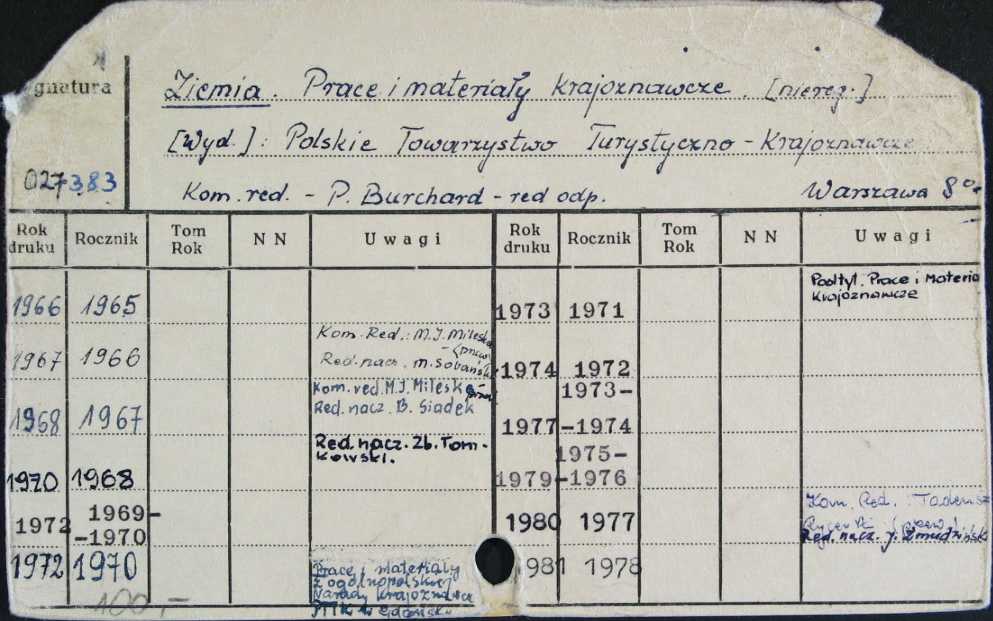 gnatura
Ziemia. Prace i materiały krajoznawcze. [niereg.]
[Wyd.]: Polskie Towarzystwo Turystyczno-Krajoznawcze
027383
Kom. red. - P. Burchard - red odp. Warszawa 8°
Rok druku Rocznik Tom Rok N N Uwagi Rok druku Rocznik Tom Rok N N Uwagi
1966 1965
1967 1966 Kom. Red.: M.I. Mileska
Red. nacz. M. Sobańsk
1968 1967 Kom. red. M.I. Mileska
Red. nacz. B. Siadek
1970 1968 Red. nacz. Zb. Tom-
kowski.
1972 1969-
-1970
1972 1970 Prace i materiały
z ogólnopolskiej
Narady Krajoznawcz
PTTK w Gdańsku
100,-
1973 1971 Podtyt. Prace i Materia
Krajoznawcze
1974 1972
1977 1973-
-1974
1979 1975-
-1976
1980 1977 Kom. Red. : Tadeusz
Red. nacz. J. Żmudziński
1981 1978